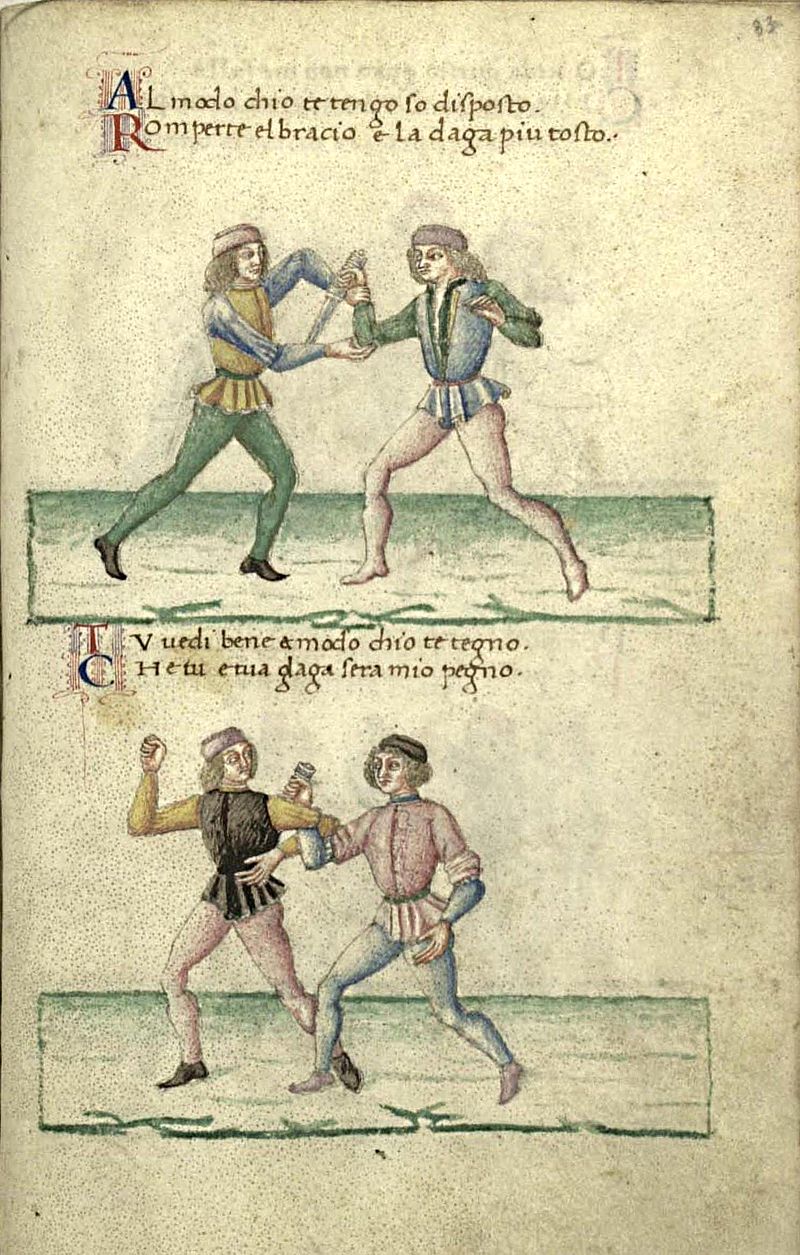 83
AL modo chio te tengo so disposto.
Romperte el bracio e la daga piu tosto.
TV uedi bene a modo chio te tegno.
CHe tu e tua daga sera mio pegno.